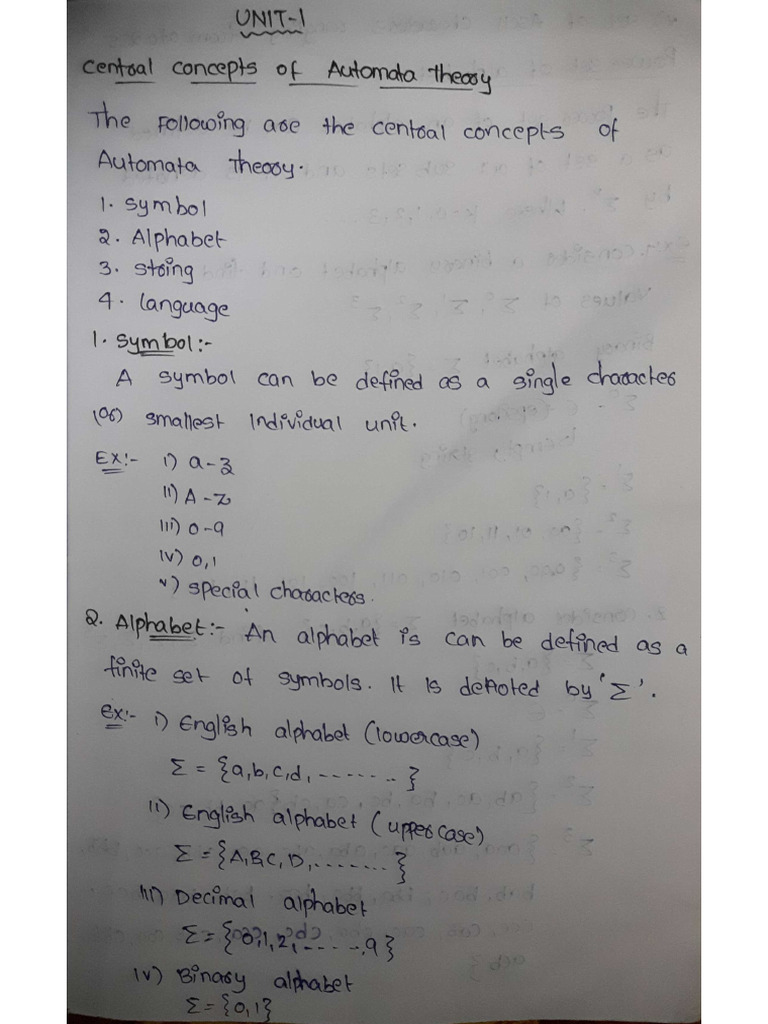 UNIT-1
Central concepts of Automata Theory
The Following are the central concepts of
Automata Theory.
1. Symbol
2. Alphabet
3. String
4. Language
1. Symbol:-
A symbol can be defined as a single character
(or) smallest individual unit.
Ex:- i) a-z
ii) A-Z
iii) 0-9
iv) 0,1
v) special characters.
2. Alphabet:- An alphabet is can be defined as a
finite set of symbols. It is denoted by 'Σ'.
Ex:- i) English alphabet (lowercase)
Σ = {a,b,c,d, ........}
ii) English alphabet (uppercase)
Σ = {A,B,C,D, ........}
iii) Decimal alphabet
Σ = {0,1,2, ......,9}
iv) Binary alphabet
Σ = {0,1}